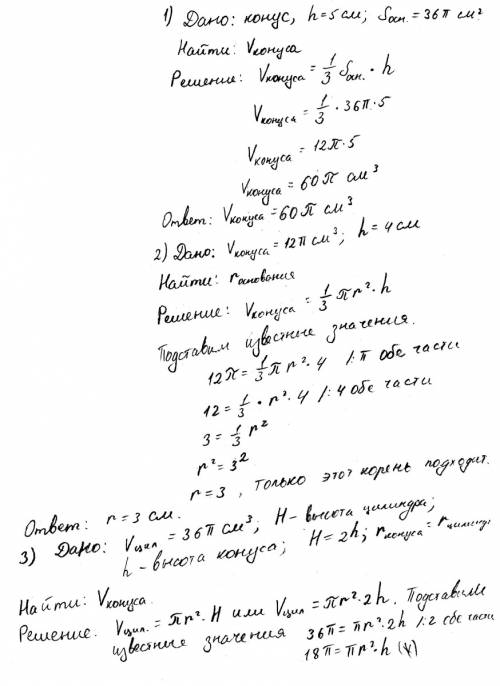 1) Дано: конус, h=5см; Sосн.=36π см²
Найти: Vконуса
Решение: Vконуса = 1/3 Sосн. · h
Vконуса = 1/3 · 36π · 5
Vконуса = 12π · 5
Vконуса = 60π см³
Ответ: Vконуса = 60π см³
2) Дано: Vконуса = 12π см³; h=4см
Найти: rоснования
Решение: Vконуса = 1/3 πr² · h
Подставим известные значения.
12π = 1/3 π r² · 4 /:π обе части
12 = 1/3 · r² · 4 /:4 обе части
3 = 1/3 r²
r² = 3²
r = 3, только этот корень подходит.
Ответ: r = 3 см.
3) Дано: Vцил = 36π см³; H - высота цилиндра;
h - высота конуса; H = 2h; rконуса = rцилинд
Найти: Vконуса.
Решение. Vцил. = πr² · H или Vцил = πr² · 2h. Подставим
известные значения 36π = πr² · 2h /:2 обе части
18π = πr² · h (*)